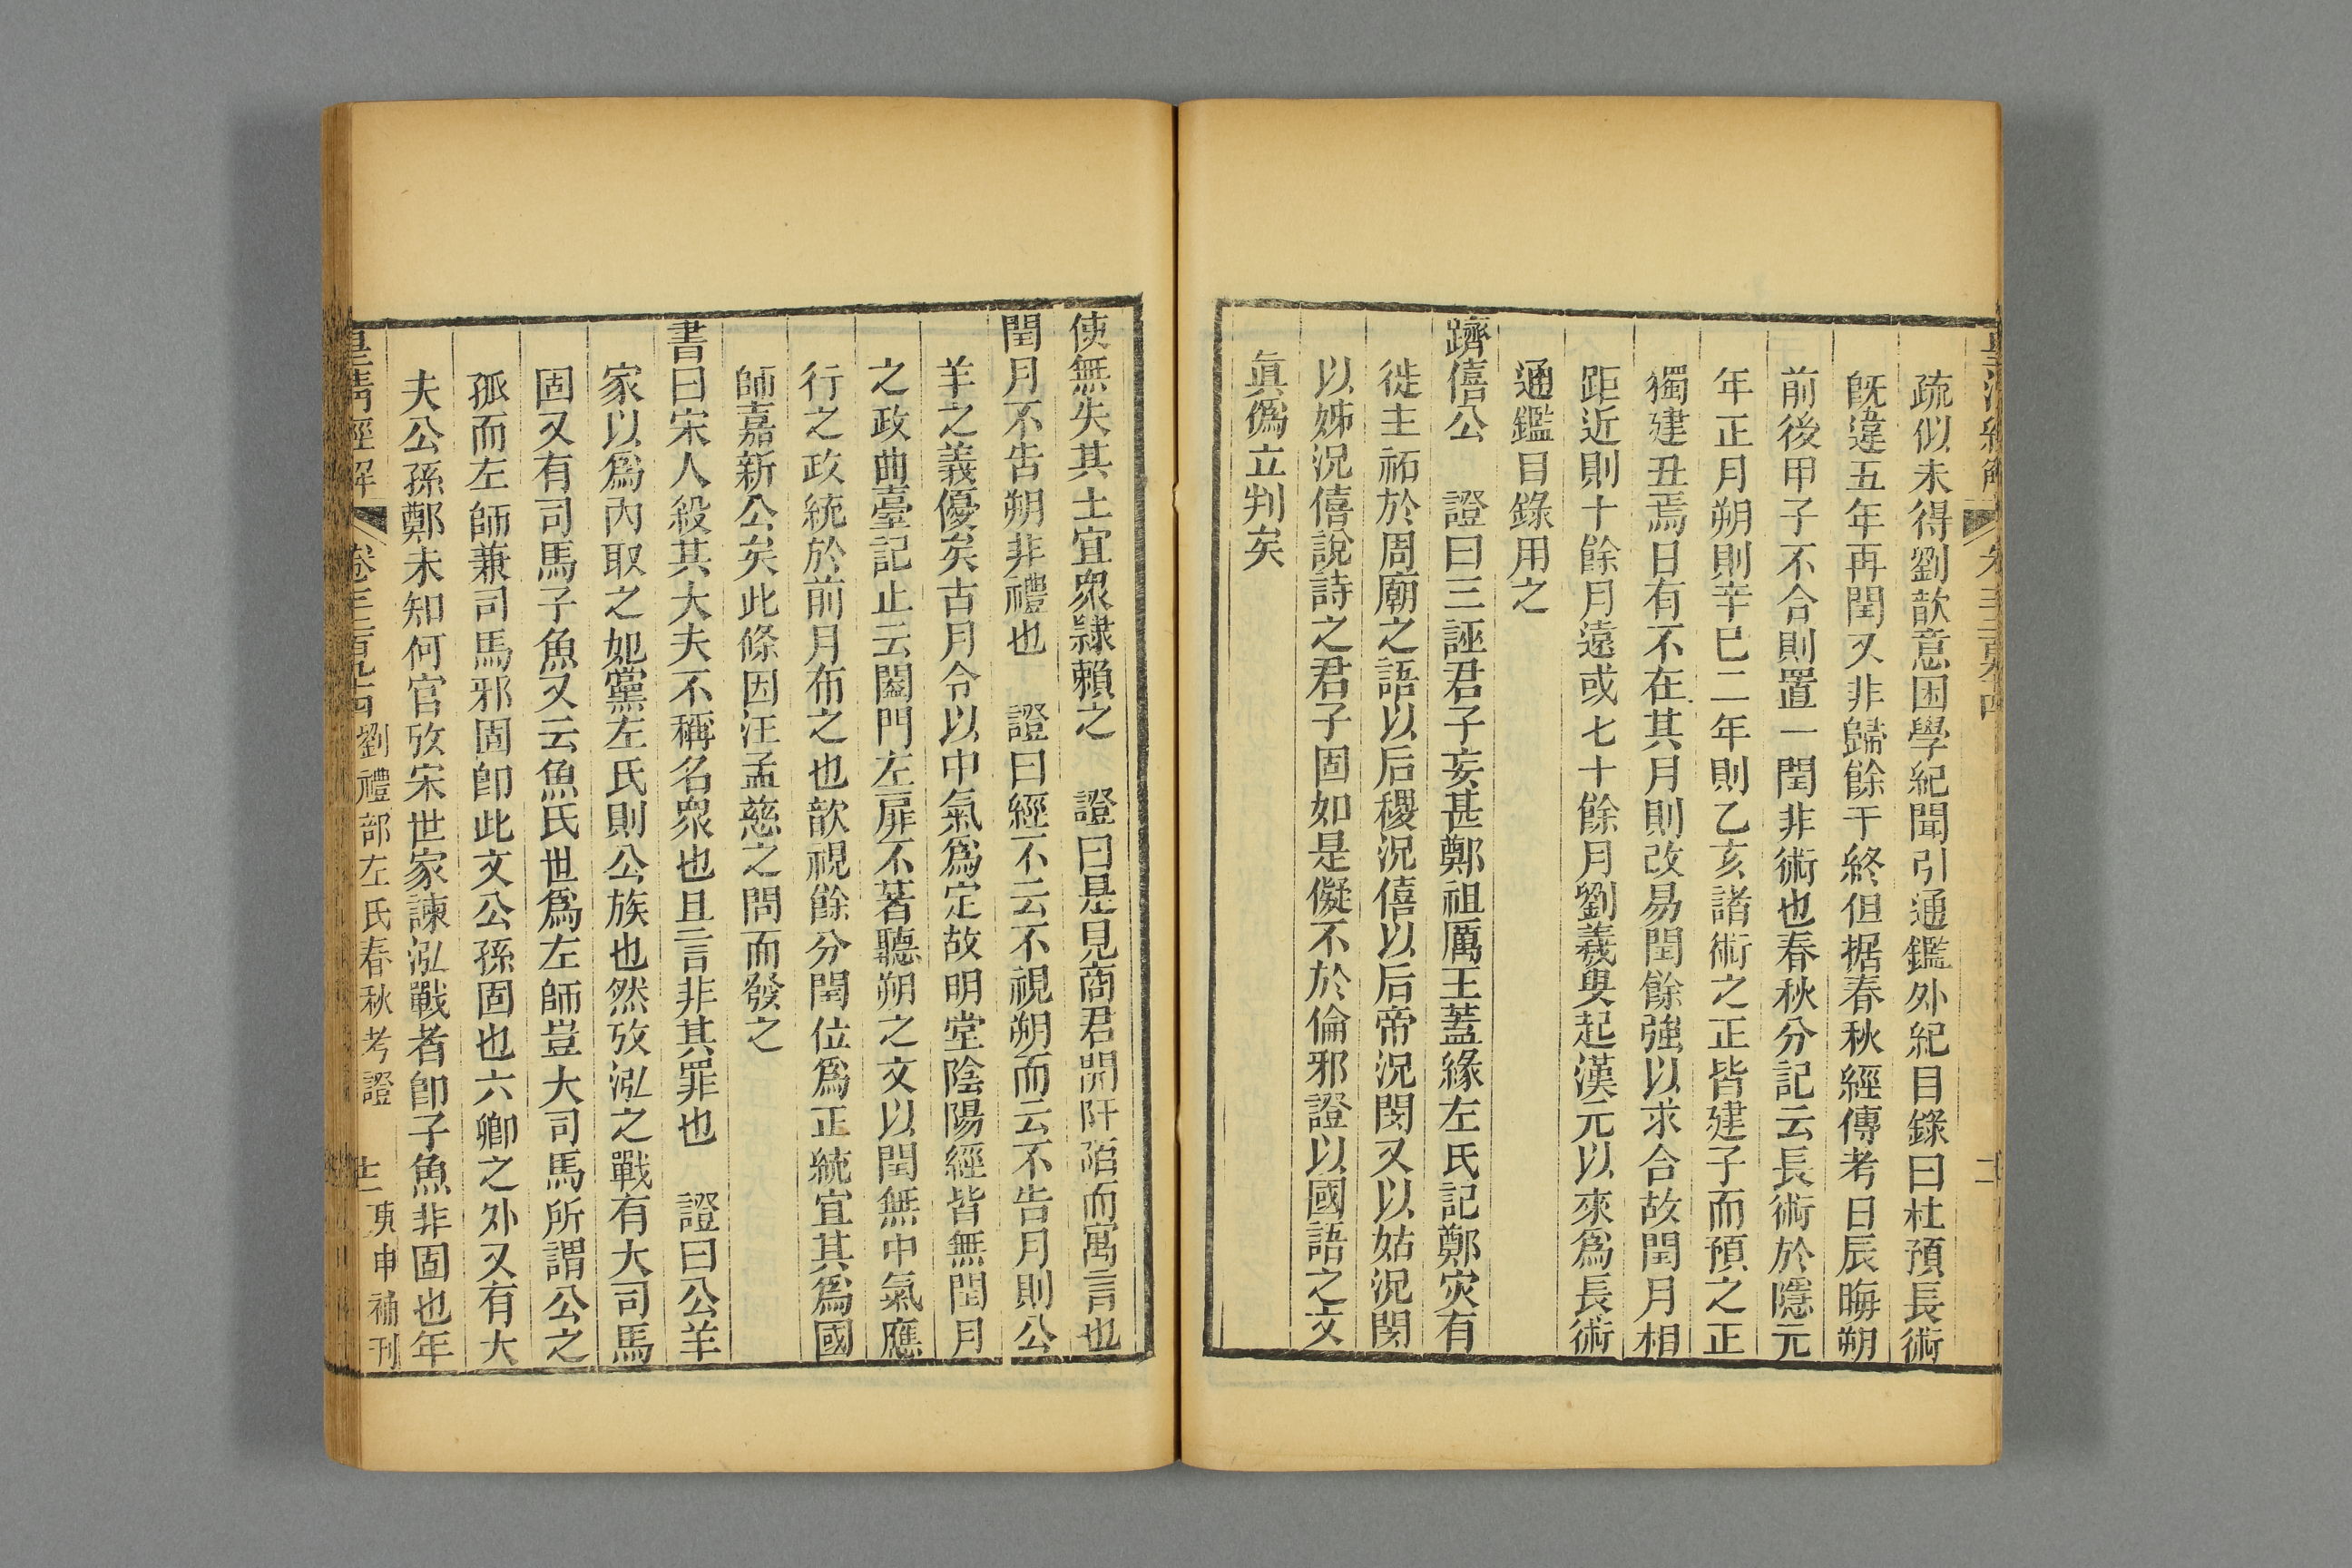 疏似未得劉歆意困學紀聞引通鑑外紀目錄曰杜預長術
旣違五年再閏又非歸餘于終但据春秋經傳考日辰晦朔
前後甲子不合則置一閏非術也春秋分記云長術於隱元
年正月朔則辛巳二年則乙亥諸術之正皆建子而預之正
獨建丑焉日有不在其月則改易閏餘強以求合故閏月相
距近則十餘月遠或七十餘月劉羲叟起漢元以來爲長術
通鑑目錄用之
躋僖公　證曰三誣君子妄甚鄭祖厲王蓋緣左氏記鄭灾有
徙主祏於周廟之語以后稷況僖以后帝況閔又以姑況閔
以姊況僖說詩之君子固如是儗不於倫邪證以國語之文
眞僞立判矣
使無失其土宜衆隸賴之　證曰是見商君開阡陌而寓言也
閏月不告朔非禮也　證曰經不云不視朔而云不告月則公
羊之義優矣古月令以中氣爲定故明堂陰陽經皆無閏月
之政曲臺記止云闔門左扉不著聽朔之文以閏無中氣應
行之政統於前月布之也歆視餘分閏位爲正統宜其爲國
師嘉新公矣此條因汪孟慈之問而發之
書曰宋人殺其大夫不稱名衆也且言非其罪也　證曰公羊
家以爲內取之如黨左氏則公族也然攷泓之戰有大司馬
固又有司馬子魚又云魚氏世爲左師豈大司馬所謂公之
孤而左師兼司馬邪固卽此文公孫固也六卿之外又有大
夫公孫鄭未知何官攷宋世家諫泓戰者卽子魚非固也年
皇清經解　卷千二百九十四　劉禮部左氏春秋考證　十二　庚申補刊